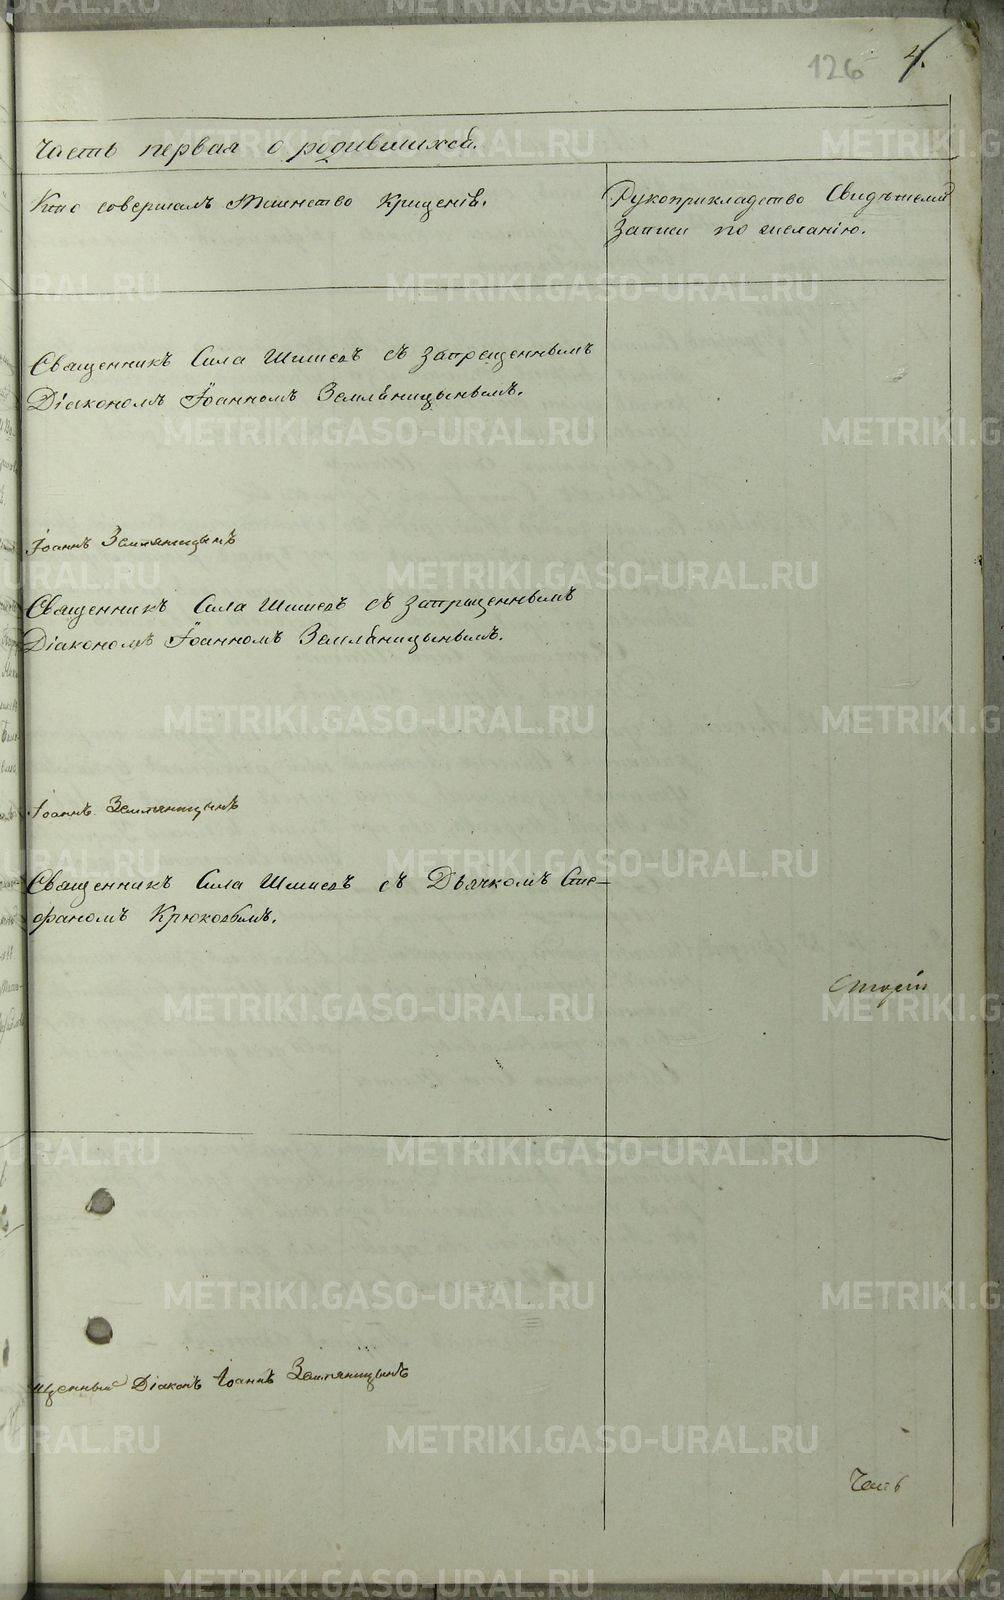 126 4.
Часть первая о родившихся.
Кто совершалъ таинство Крещенія.
Рукоприкладство Свидѣтелей
записи по желанію.
Священникъ Сила Шишевъ съ запрещеннымъ
Діакономъ Іоанномъ Земляницынымъ.
Іоаннъ Земляницынъ
Священникъ Сила Шишевъ съ запрещеннымъ
Діакономъ Іоанномъ Земляницынымъ.
Іоаннъ Земляницынъ
Священникъ Сила Шишевъ съ Дьячкомъ Сте-
фаномъ Крюковымъ.
щенный Діаконъ Іоаннъ Земляницынъ
Часть
METRIKI.GASO-URAL.RU